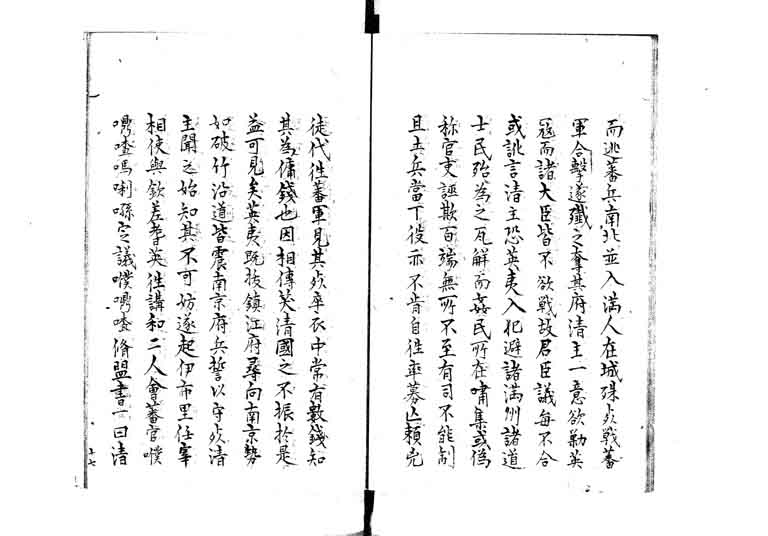 而逃蕃兵南北並入満人在城殊死戰蕃
軍合擊遂殲之奪其府清主一意欲勦英
寇而諸大臣皆不欲戰故君臣議每不合
或訛言清主恐英夷入犯避諸満州諸道
士民殆為之瓦解而姦民所在嘯集或偽
称官吏誣欺百端無所不至有司不能制
且土兵當下役亦不肯自往率募亡頼児
徒代往蕃軍見其死卒衣中常有數錢知
其為傭錢也因相傳笑清國之不振於是
益可見矣英夷既拔鎮江府尋向南京勢
如破竹沿道皆震南京府兵誓以守死清
主聞之始知其不可妨遂起伊布里任宰
相使與欽差耆英往講和二人會蕃官噗
喳嗎喇定議噗喳脩盟書一曰清
十七